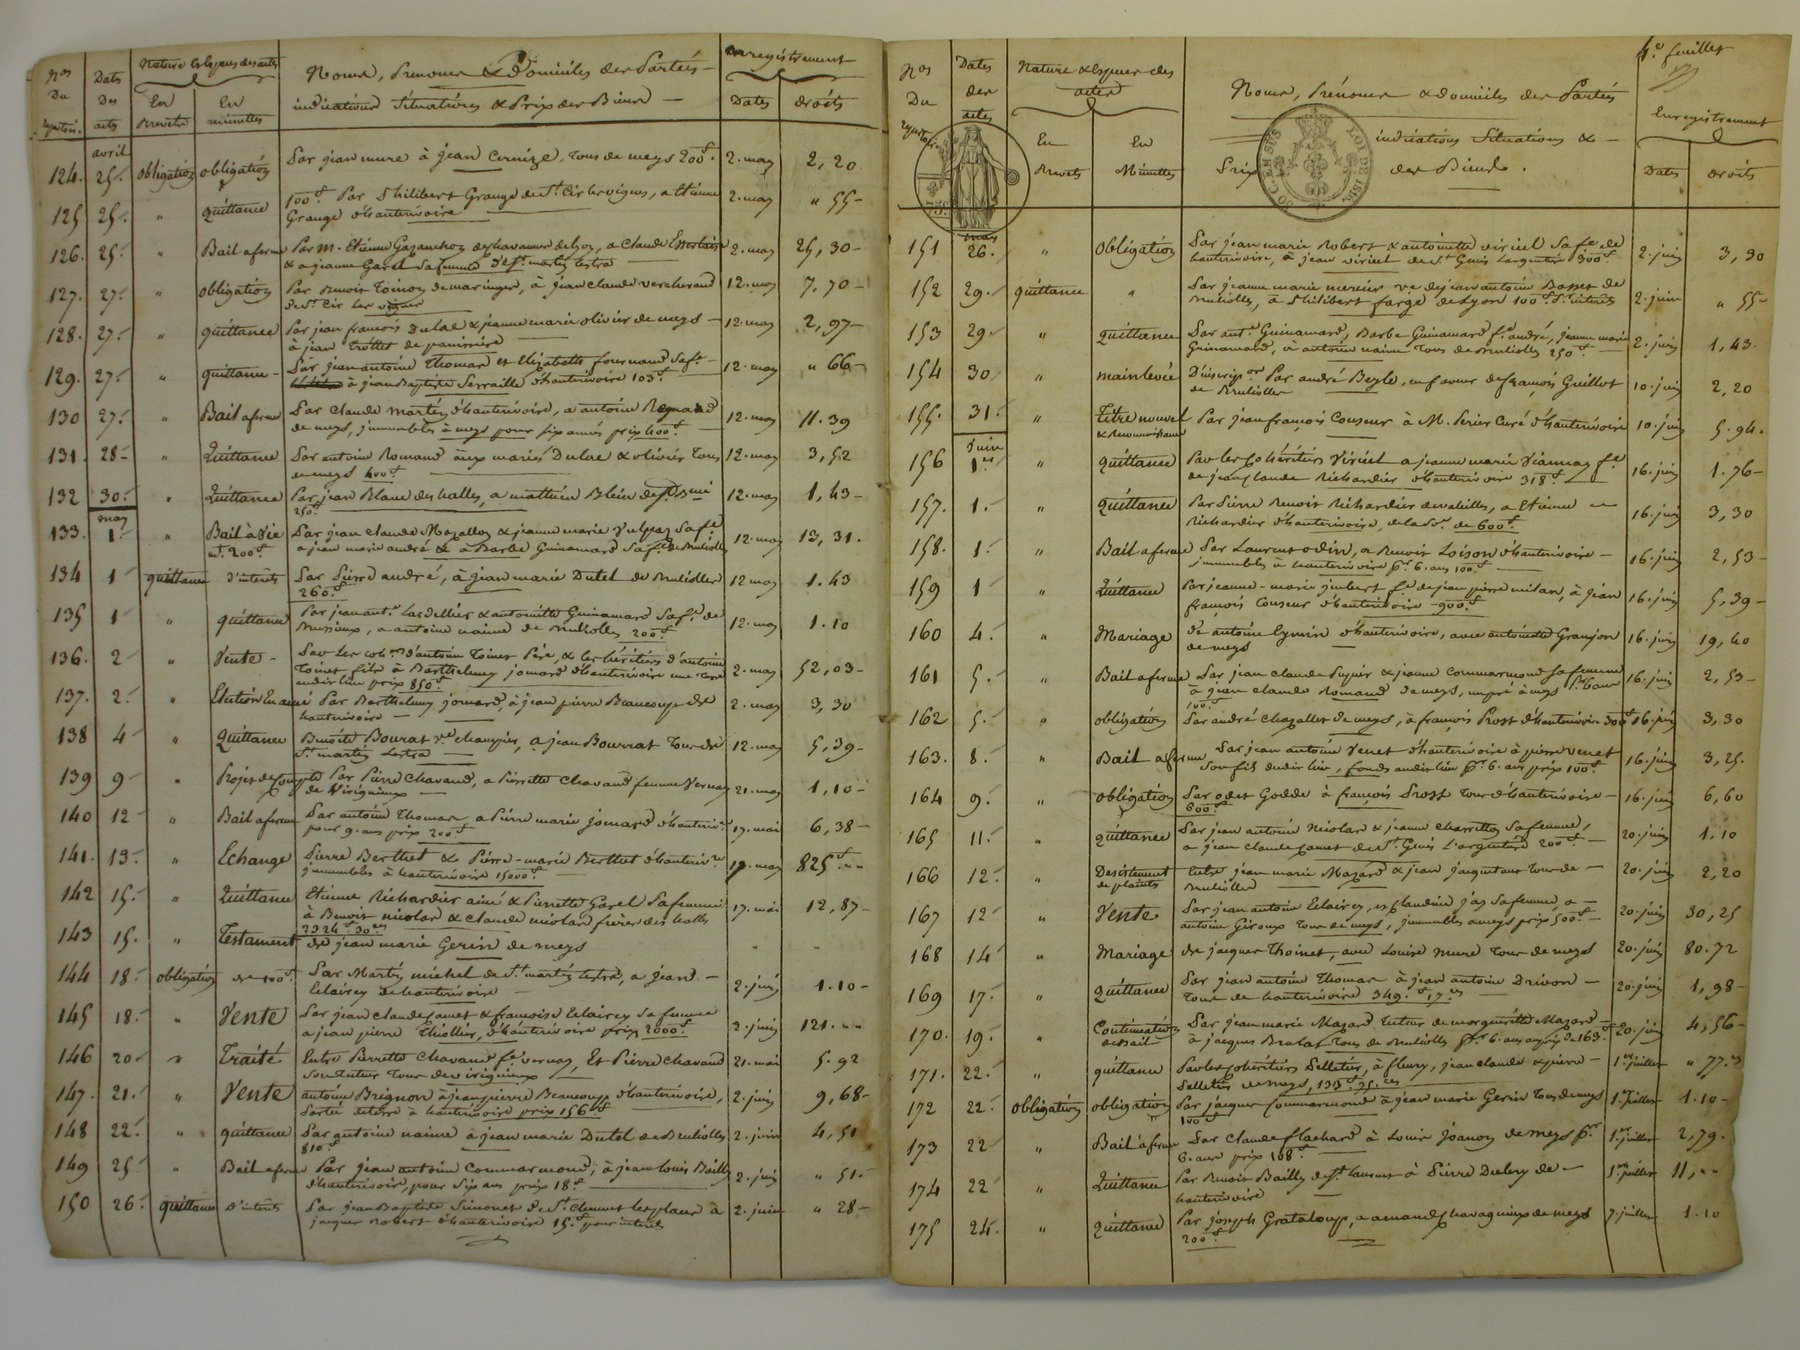 Nos Du Dates Des actes Nature & Espèces des actes Noms, Prenoms & Domiciles des Parties enregistrement
En Brevets En minutes indications Situations & Prix des Biens Dates droits
avril
124. 25. obligation obligation Par jean mure à jean tous de meys 200f. 2. may 2,20
125 25. " Quittance 100f. Par Philibert Grange de St. Cir les vignes, a Etienne 2. may " 55
Grange d'hauterivoire
126. 25. " Bail a ferme Par M. Etienne de Lyon, a Claude 2. may 25,30
& a jeanne Garel sa femme de St. martin lestra
127. 27. " obligation Par Benoit Toinon de maringes, à jean claude 12. may 7.70
de St. Cir les vignes
128. 27. " quittance Par jean francois Dulac & jeanne marie olivier de meys 12. may 2,97
à jean trottet de panissiere
129. 27. " quittance Par jean antoine Thomas et Elizabeth fournand sa fe. 12. may " 66
à jean Baptiste Serraille d'hauterivoire 103f.
130 27. " Bail a ferme Par Claude Martin d'hauterivoire, a antoine 12. may 11.39
de meys, immeubles à meys pour six années prix 400f.
131. 28 " Quittance Par antoine Romand aux mariés Dulac & olivier tous 12. may 3,52
de meys 400f.
132 30. " Quittance Par jean Blanc des halles, a mathieu Blein de 12. may 1,43
250f.
may
133. 1. " Bail à Vie Par jean claude Mazallon & jeanne marie Vulpas sa fe. 12. may 13,31.
200f. a jean marie andré & à Barbe Guinamard sa fe. de Brullioles
134 1 quittance d'interets Par Pierre andré, à jean marie Dutel de Brullioles 12 may 1.43
260f.
135 1 " quittance Par jean ant.e Lardellier & antoinette Guinamard sa fe. de 12. may 1.10
Brussieux, a antoine naime de Brullioles 200f.
136. 2 " Vente Par les d'antoine Toinet Père, & les héritiers d'antoine 2. may 52,03
Toinet fils à Barthelemy jomard d'hauterivoire une terre
audit lieu prix 850f.
137. 2. " Election en ami Par Barthelemy jomard, à jean pierre Beaucoup de 2. may 3,30
hauterivoire
138 4 " Quittance Benoite Bourat ve. champier, a jean Bourrat tous de 12. may 5,39
St. martin Lestra
139 9 " Projet de Compte Par Pierre Chavand, a Pierrette Chavand femme Vernay 21. may 1,10
de Virigneux
140 12 " Bail a ferme Par antoine Thomas a Pierre marie jomard d'hauterire. 17. mai 6,38
pour 9. ans prix 200f.
141. 13. " Echange Pierre Berthet & Pierre-marie Berthet d'hauterivre 17. may 825f. "
immeubles à hauterivoire 15000f.
142 15. " Quittance Etienne Richardier ainé & Pierrette Garel sa femme 17. mai 12,87
à Benoit nicolas & claude nicolas frères des halles
2324f. 30ces
143 15. " Testament de jean marie Gerin de meys " "
144 18. obligation de 100f. Par Martin michel de St. martin lestra, a jean 2. juin 1.10
Eclaircy de hauterivoire
145 18. " Vente Par jean claude & francoise Eclaircy sa femme 2. juin 121. "
a jean pierre Thiollier, d'hauterivoire prix 2000f.
146 20. " Traité Entre Pierrette Chavand fe. vernay, Et Pierre Chavand 21. mai 5.92
son tuteur tous de virigneux
147. 21. " Vente antoine Brignon à jean pierre Beaucoup d'hauterivoire, 2. juin 9,68
Partie de terre à hauterivoire prix 156f.
148 22. " quittance Par antoine naime a jean marie Dutel de Brullioles 2. juin 4,51
810f.
149 25. " Bail a ferme Par jean antoine Commarmond, à jean louis Bailly 2. juin " 51.
d'hauterivoire, pour six ans prix 18f.
150 26. quittance d'interets Par jean Baptiste Simonet de St. Clement les places à 2. juin " 28
jacques Robert d'hauterivoire 15f. pour interets
4e. feuillet
Nos Du Dates des actes Nature & Espèces des actes Noms, Prénoms & domiciles des Parties Enregistrement
En Brevets En Minutes indications Situations & Prix des Biens. Dates droits
50 CEN 75
may
151 26. " obligation Par jean marie Robert & antoinette viricel sa fe. de 2. juin 3,30
hauterivoire, à jean viricel de St. Genis Largentier 300f.
152 29. quittance " Par jeanne marie mercier ve. de jean antoine Basset de 2. juin " 55
Brullioles, à Philibert farge de Lyon 100f.
153 29. " quittance Par ant.e Guinamard, Barbe Guinamard fe. andré, jeanne marie 2. juin 1,43.
Guinamard, à antoine naime tous de Brullioles 250f.
154 30 " mainlevée D'inscripon Par andré Beyle, en faveur de françois Guillot 10. juin 2,20
de Brullioles
155. 31. " Titre nouvel Par jean françois Couzeur à M. Perier Curé d'hauterivoire 10. juin 5.94.
& Reconnaissance
Juin
156 1er " quittance Par les Cohéritiers Viricel a jeanne marie Viannay fe. 16. juin 1.76
de jean Claude Richardier d'hauterivoire 318f.
157. 1. " Quittance Par Pierre Benoit Richardier de valeilles, a Etienne 16. juin 3,30
Richardier d'hauterivoire, de la de 600f.
158. 1. " Bail a ferme Par Laurent odin, a Benoit Loison d'hauterivoire 16. juin 2,53
immeubles à hauterivoire pr. 6. ans 100f.
159 1 " Quittance Par jeanne-marie imbert fe. de jean pierre milan, à jean 16. juin 5,39
françois Couzeur d'hauterivoire 900f.
160 4. " Mariage d'e antoine Eymin d'hauterivoire, avec antoinette Granjon 16. juin 19,40
de meys
161 5. " Bail a ferme Par jean claude Pupier & jeanne Commarmond sa femme 16. juin 2,53
à jean claude Romand de meys, un pré à meys pr. 6 ans
100f.
162 5. " obligation Par andré Chazallet de meys, à françois Prost d'hauterivoire 300f. 16. juin 3,30
163. 8. " Bail a ferme Par jean antoine Venet d'hauterivoire à pierre venet 16. juin 3,25.
son fils dudit lieu, fonds audit lieu pr. 6. ans prix 100f.
164 9. " obligation Par odet Godde à françois Prost tous d'hauterivoire 16. juin 6,60
600f.
165 11. " quittance Par jean antoine Nicolas & jeanne Charretton sa femme, 20. juin 1.10
a jean claude de St. Genis L'argentière 200f.
166 12. " Desistement Entre jean marie Mazard & jean jacquetant tous de 20. juin 2,20
de plaintes Brullioles
167 12 " Vente Par jean antoine Eclaircy, & Claudine jas sa femme, a 20. juin 30,25
antoine Giroux tous de meys, immeubles a meys prix 500f.
168 14 " Mariage de jacques Thoinet, avec Louise Mure tous de meys 20. juin 80.72
169 17. " Quittance Par jean antoine Thomas à jean antoine Drivon 20. juin 1,98
tous de hauterivoire 349f. 17ces
170. 19. " Continuation Par jean marie Mazard tuteur de marguerite Mazard 20. juin 4,56
de Bail à jacques Bralat tous de Brullioles pr. 6. ans au prix de 163f.
171. 22. " quittance Par les cohéritiers Pelletier, à fleury, jean claude & pierre 1er. juillet " 77.
Pelletier de meys, 133f. 35ces
172 22. obligation obligation Par jacques Commarmond à jean marie Gerin tous de meys 1er. juillet 1.10
100f.
173 22 " Bail a ferme Par Claude flachard à Louis joanon de meys pr. 1er. juillet 2,79.
6. ans prix 108f.
174 22 " Quittance Par Benoit Bailly de St. laurent à Pierre de 1er. juillet 11, "
hauterivoire
175 24. " Quittance Par joseph Grataloup, a amand de meys 7. juillet 1.10
200f.